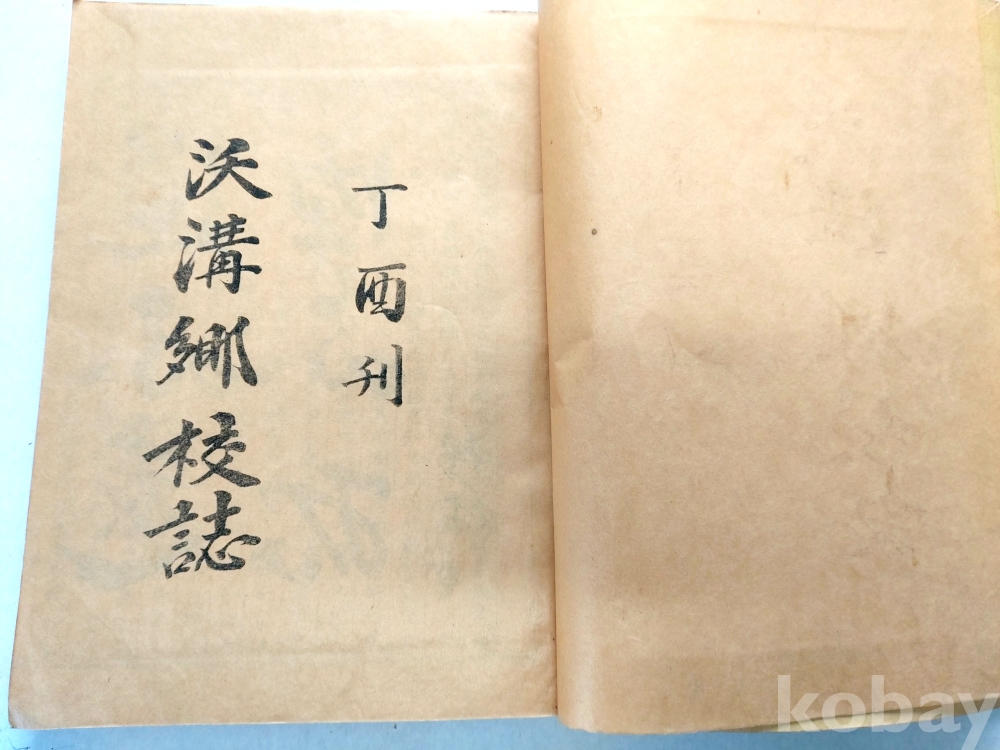 丁酉刊
沃溝鄕校誌
kobay